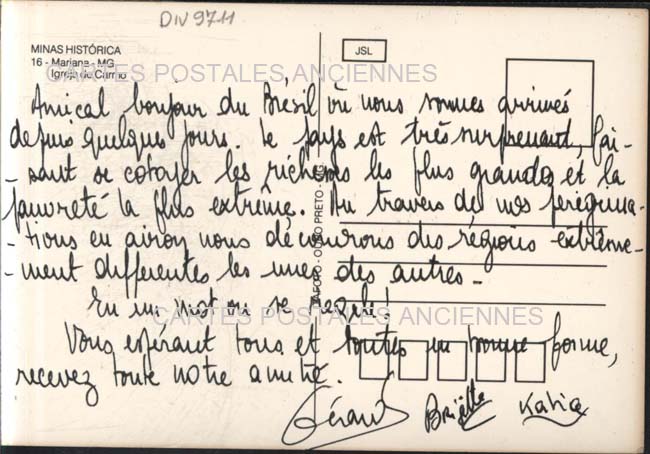 DIV 9711
MINAS HISTÓRICA
16 - Mariana - MG
Igreja do Carmo
JSL
CARTES POSTALES ANCIENNES
Amical bonjour du Brésil où nous sommes arrivés
depuis quelques jours. Le pays est très surprenant, fai-
-sant se cotoyer les richesses les plus grandes et la
pauvreté la plus extrême. Au travers de nos pérégrina-
-tions en avion nous découvrons des régions extrême-
-ment differentes les unes des autres -
En un mot on se régale!
CARTES POSTALES ANCIENNES
Vous espérant tous et toutes en bonne forme,
recevez toute notre amitié.
Gérard Brigitte Katia
OURO PRETO - MG